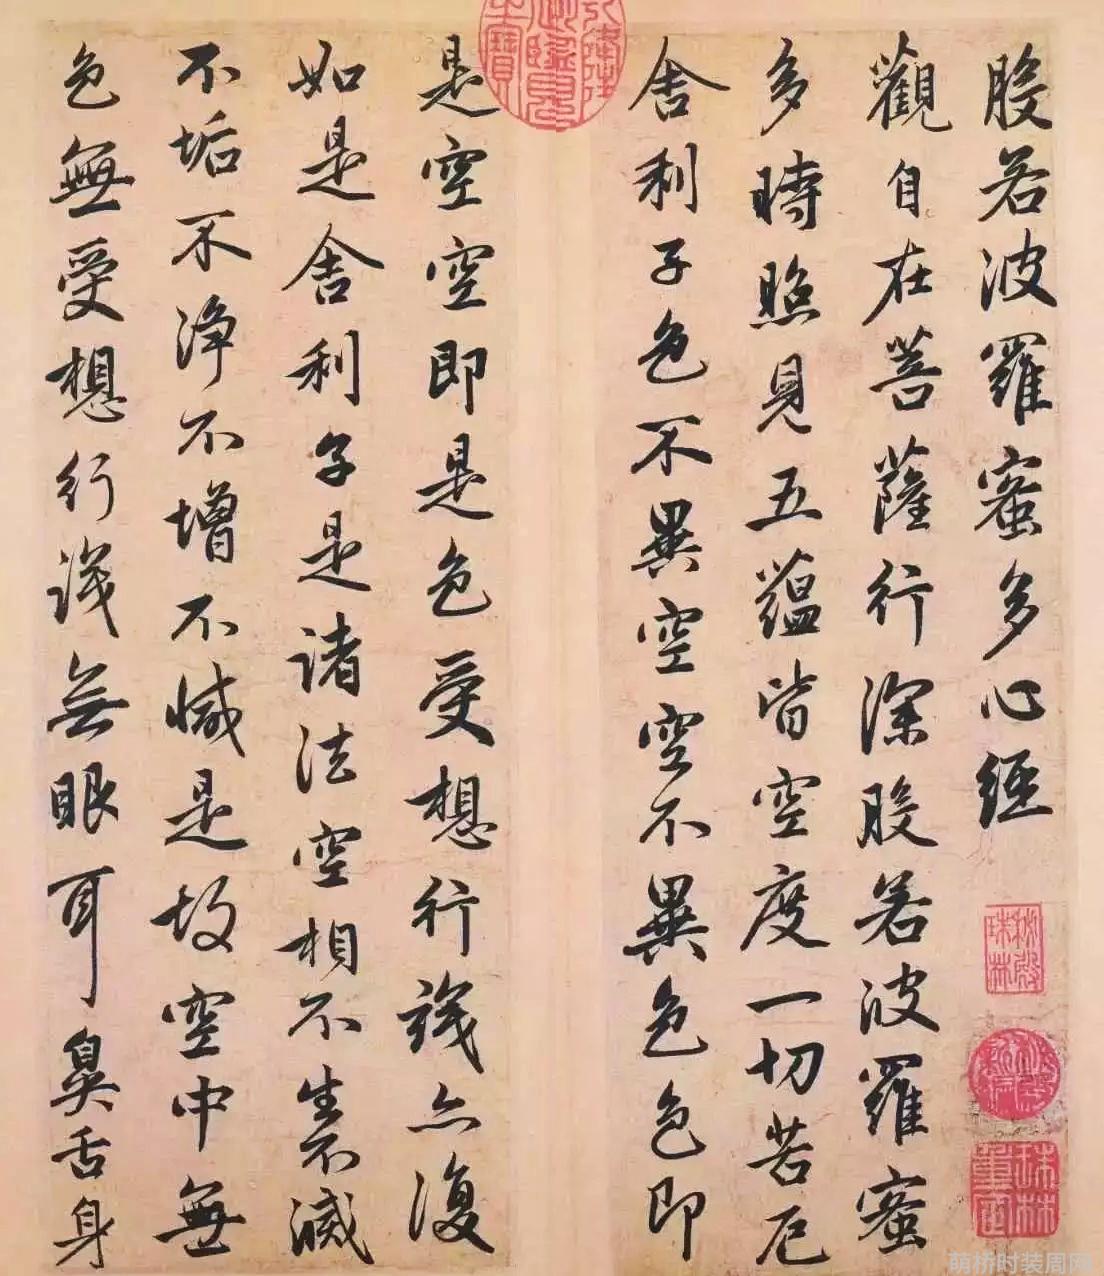 般若波羅蜜多心經
觀自在菩薩行深般若波羅蜜
多時照見五蘊皆空度一切苦厄
舍利子色不異空空不異色色即
是空空即是色受想行識亦復
如是舍利子是諸法空相不生不滅
不垢不淨不增不減是故空中無
色無受想行識無眼耳鼻舌身
秘殿
珠林
珠林
重定
萌桥时装周网